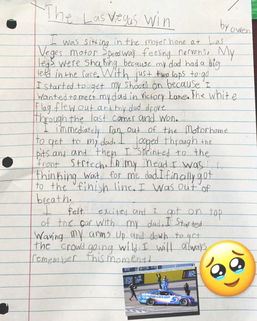 The Las Vegas Win
by owen
I was sitting in the motor home at Las
Veges motor Speedway feeling nervous. My
legs were shaking because my dad had a big
led in the race. With just two laps to go
I started to get my shoes on because I
wanted to meet my dad in victory Lane. The white
flag flew out and my dad drove
through the last corner and won.
I immediately ran out of the Motorhome
to get to my dad. I looped through the
pits and then I sprinted to the
front stretch. In my head I was
thinking wait for me dad. I finally got
to the finish line. I was out of
breath.
I felt excited and I got on top
of the car with my dad. I started
waving my arms up and down to get
the crowd going wild. I will always
remember this moment!